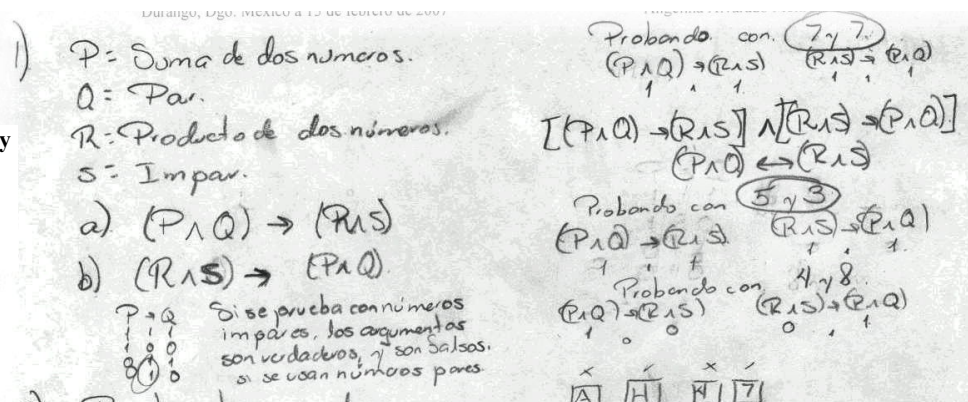 Durango, Dgo. México a 15 de febrero de 2007
y
1) P= Suma de dos números.
Q= Par.
R= Producto de dos números.
S= Impar.
a) (P∧Q) → (R∧S)
b) (R∧S) → (P∧Q).
P → Q
1 1 1
1 0 0
0 1 1
0 1 0
Si se prueba con números
impares, los argumentos
son verdaderos, y son falsos.
si se usan números pares
Probando con. 7 y 7.
(P∧Q) → (R∧S) (R∧S) → (P∧Q)
1 1 1 1 1 1
[(P∧Q) → (R∧S)] ∧ [(R∧S) → (P∧Q)]
(P∧Q) ↔ (R∧S)
Probando con 5 y 3
(P∧Q) → (R∧S) (R∧S) → (P∧Q)
1 1 1 1 1 1
Probando con 4 y 8.
(P∧Q) → (R∧S) (R∧S) → (P∧Q)
1 0 0 0 1 1
A H 4 7